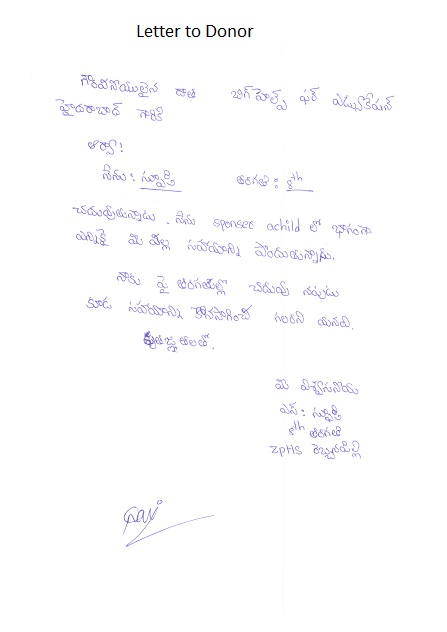 Letter to Donor
గౌరవనీయులైన దాత బిగ్ హెల్ప్ ఫర్ ఎడ్యుకేషన్
హైదరాబాద్ గారికి
ఆర్యా!
నేను : స్ఫూర్తి తరగతి : 8th
చదువుతున్నాను. నేను sponser achild లో భాగంగా
ఎన్నికై మీ వల్ల సహాయాన్ని పొందుతున్నాను.
నాకు పై తరగతుల్లో చదువు నప్పుడు
కూడ సహాయాన్ని కొనసాగించ గలరని మనవి.
కృతజ్ఞతలతో.
మీ విశ్వాసనీయ
ఎస్ : స్ఫూర్తి
8th తరగతి
ZPHS